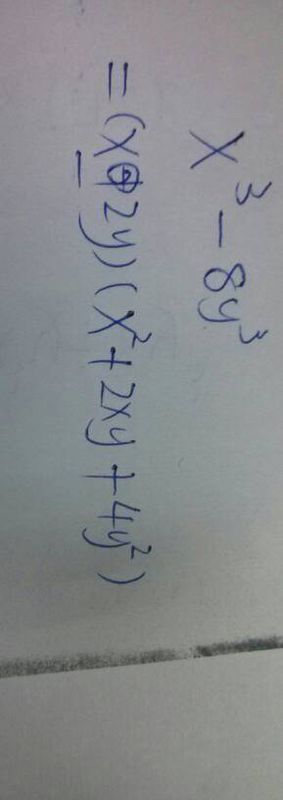 x³ - 8y³
= (x - 2y) (x² + 2xy + 4y²)